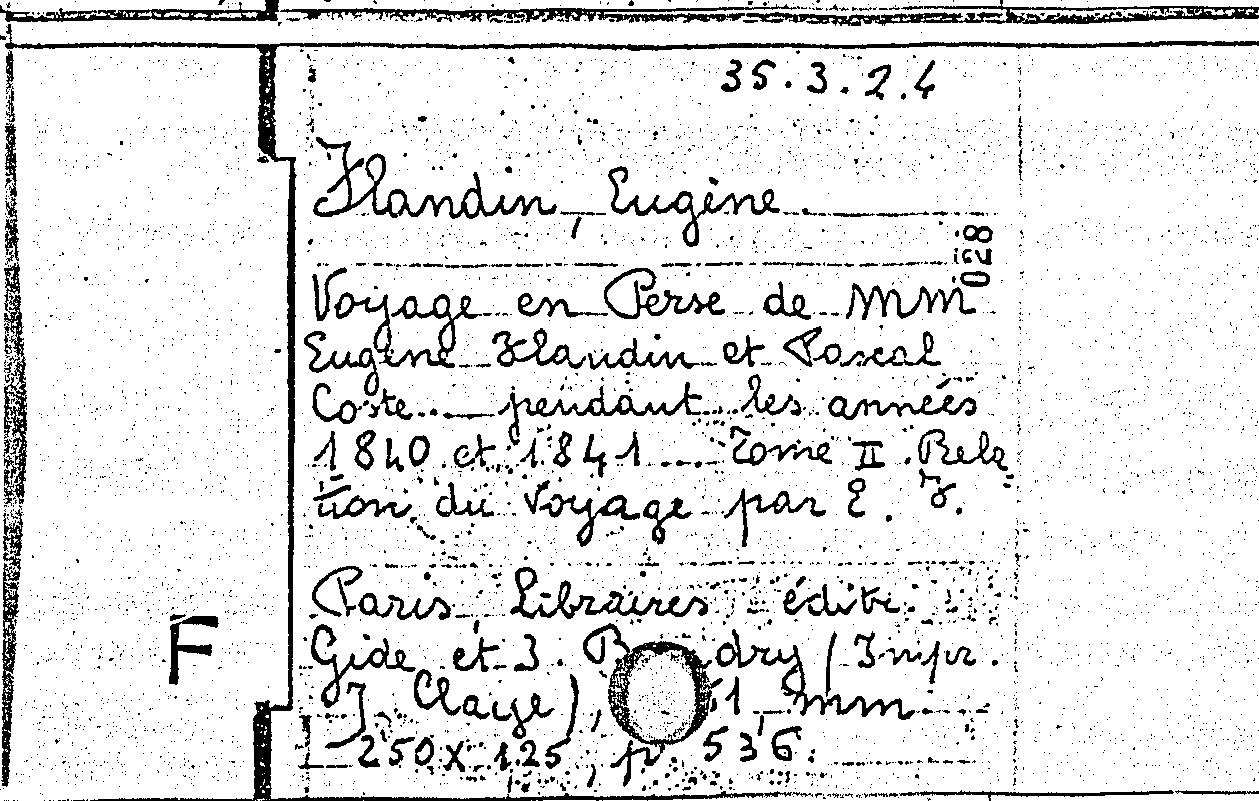 35.3.2.4
Flandin, Eugène.
028
Voyage en Perse de MM
Eugène Flandin et Pascal
Coste... pendant les années
1840 et 1841 ... Tome II. Rela
tion du Voyage par E. F.
Paris, Libraires édite.
Gide et J. dry (Impr.
J. Claye), 1, mm
250 x 125, p 536.
F